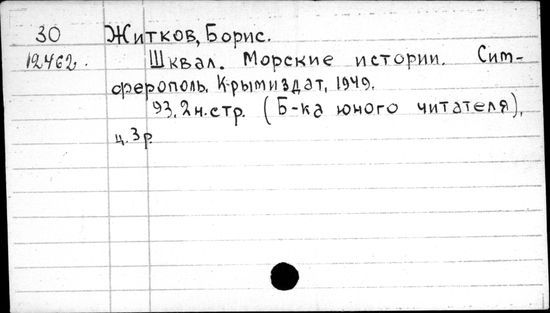 30 Житков, Борис.
12462. Шквал. Морские истории. Сим-
ферополь. Крымиздат, 1949.
93, 2 н. стр. (Б-ка юного читателя),
ц. 3 р.